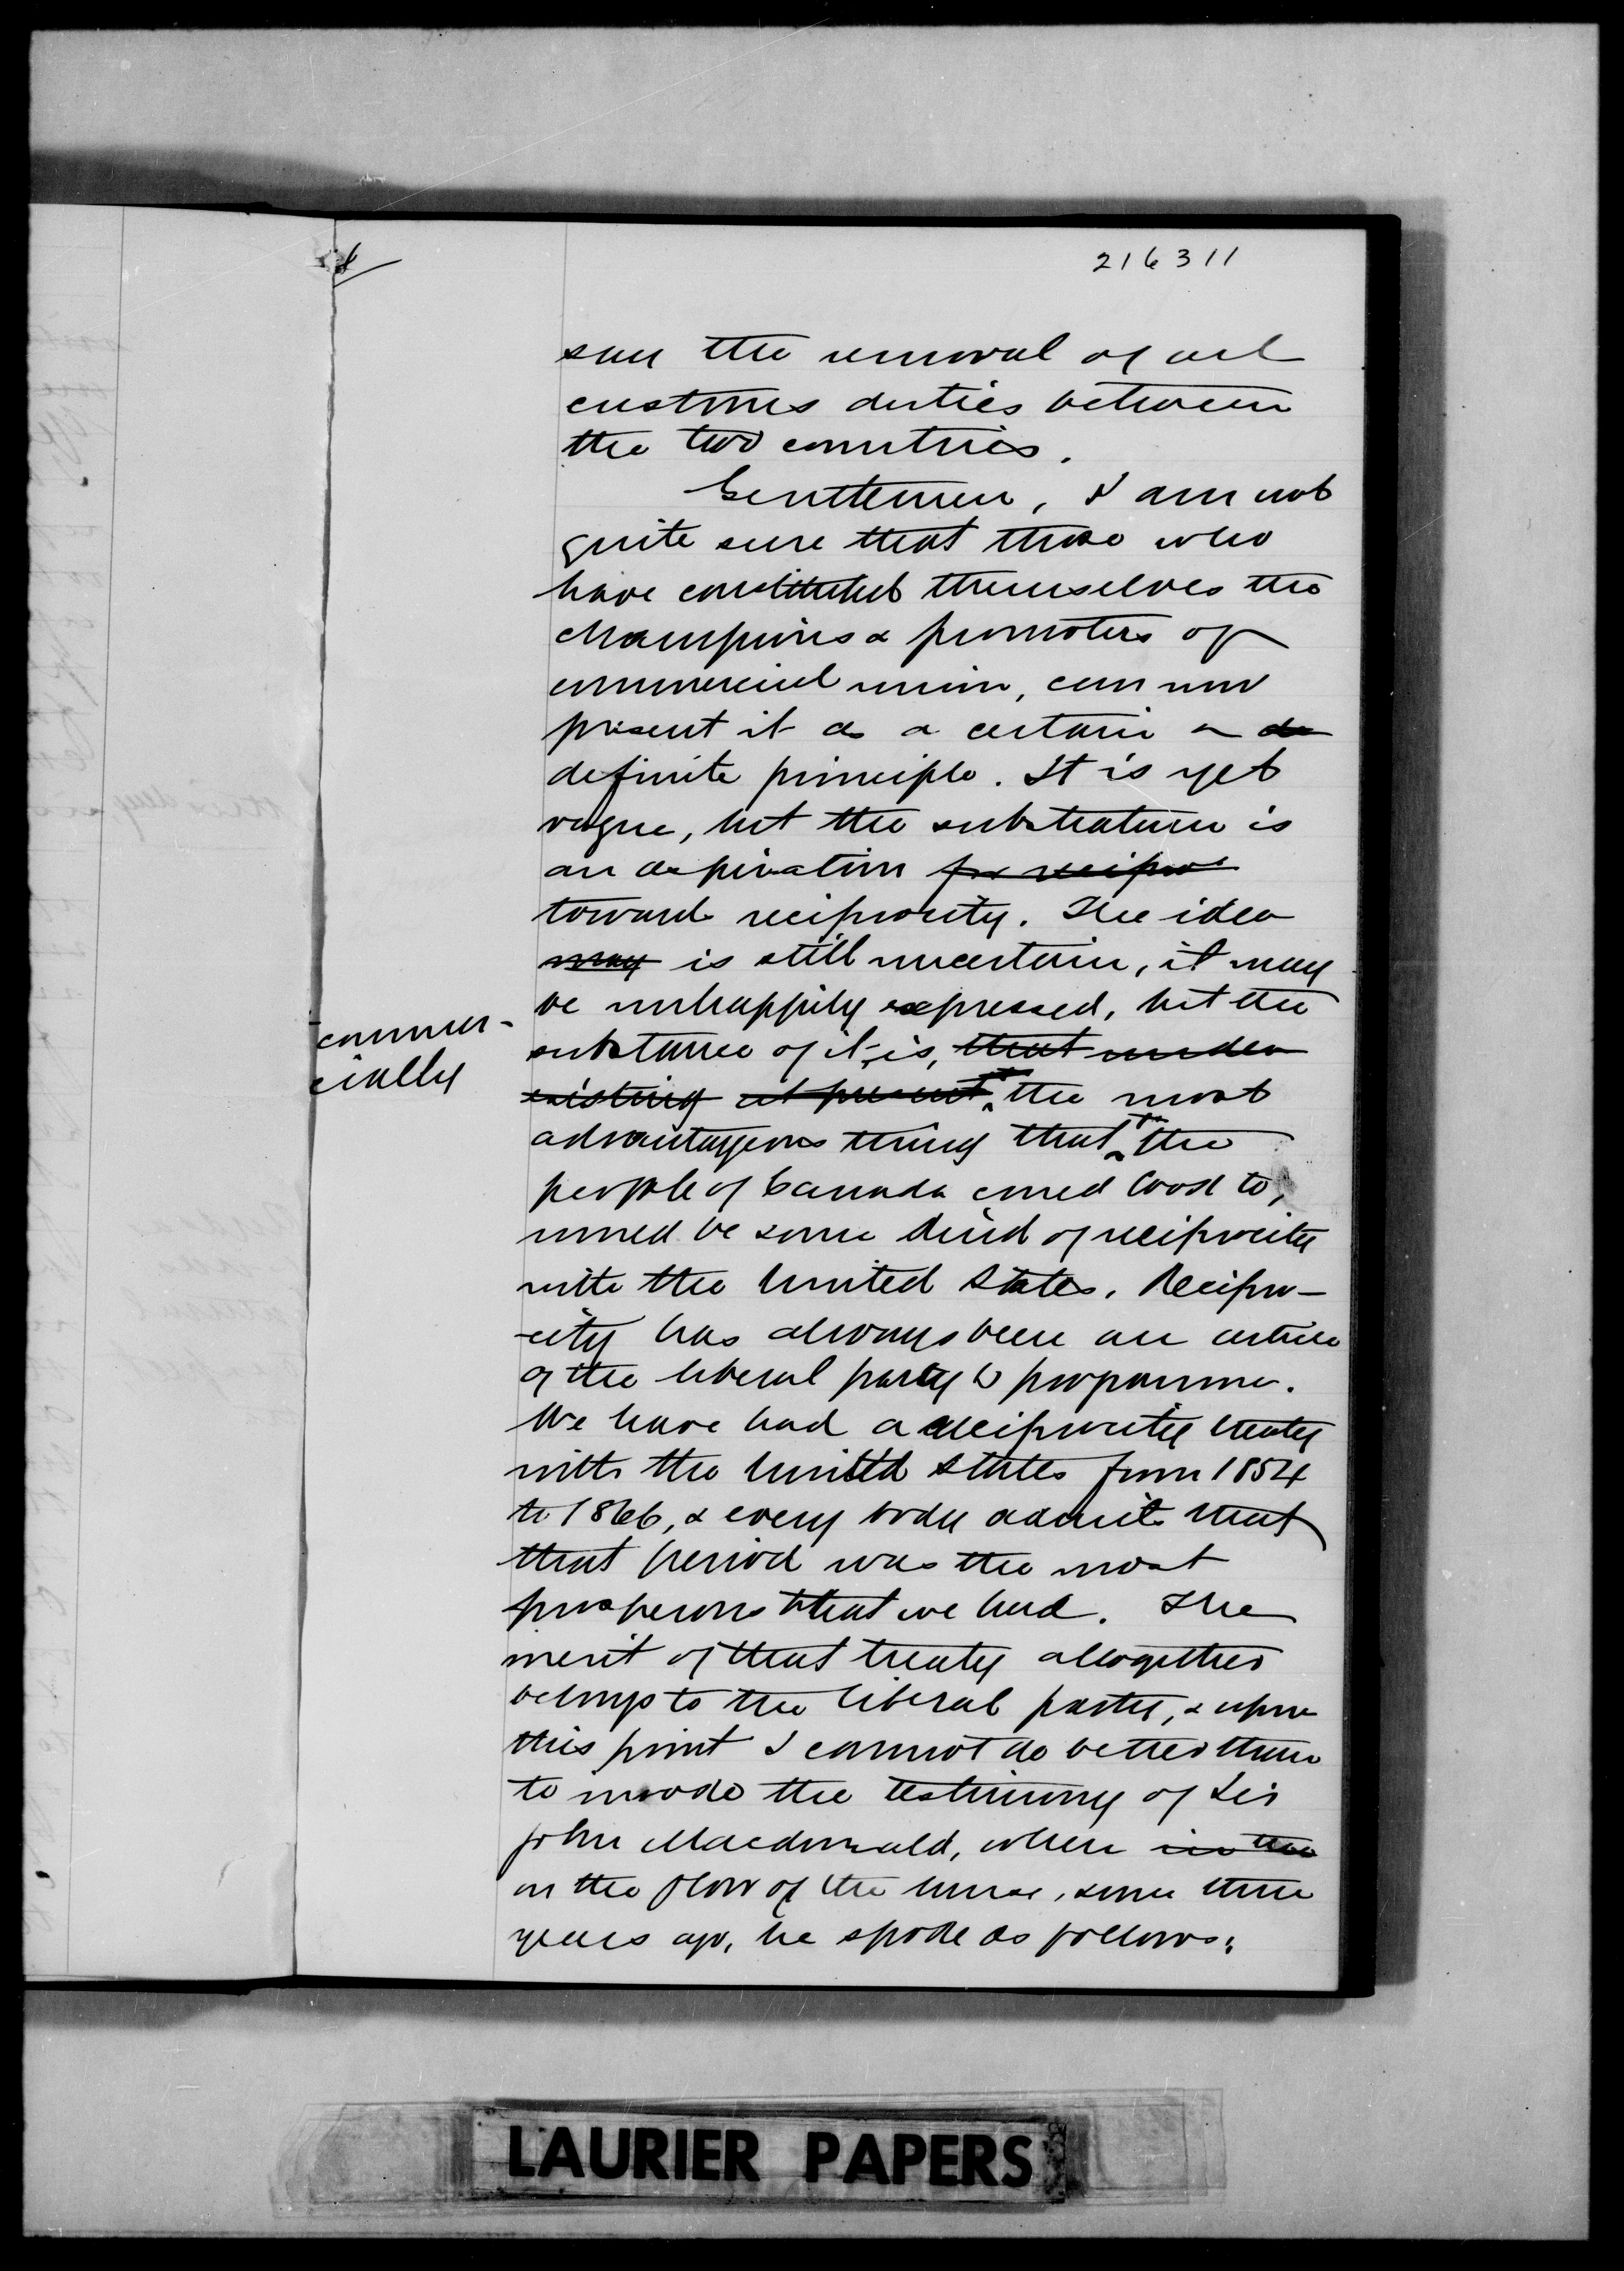 216311
say the removal of all
customs duties between
the two countries.
Gentlemen, I am not
quite sure that those who
have constituted themselves the
champions & promoters of
commercial union, can now
present it as a certain or de
definite principle. It is yet
vague, but the substratum is
an aspiration for recipro
toward reciprocity. The idea
may is still uncertain, it may
be unhappily expressed, but the
commer-
cially
substance of it is, that under
existing at present, the most
advantageous thing that the
people of Canada could look to,
would be some kind of reciprocity
with the United States. Recipro-
-city has always been an article
of the liberal party's programme.
We have had a reciprocity treaty
with the United States from 1854
to 1866, & every body admits that
that period was the most
prosperous that we had. The
merit of that treaty altogether
belongs to the liberal party, & upon
this point I cannot do better than
to invoke the testimony of Sir
John Macdonald, when in the
on the floor of the house, some three
years ago, he spoke as follows:
LAURIER PAPERS